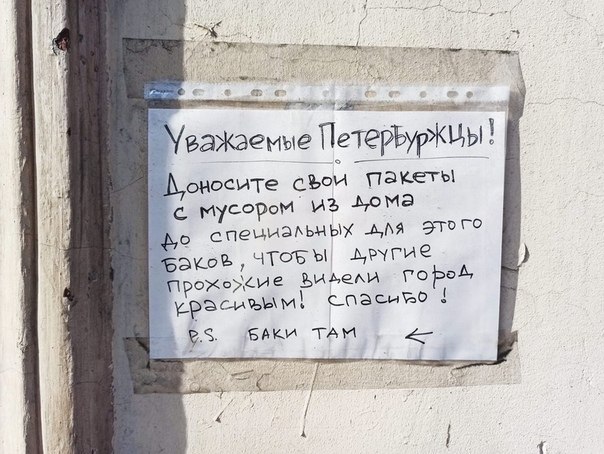 Уважаемые Петербуржцы!
Доносите свои пакеты
с мусором из дома
до специальных для этого
баков, чтобы другие
прохожие видели город
красивым! спасибо!
P.S. баки там ←